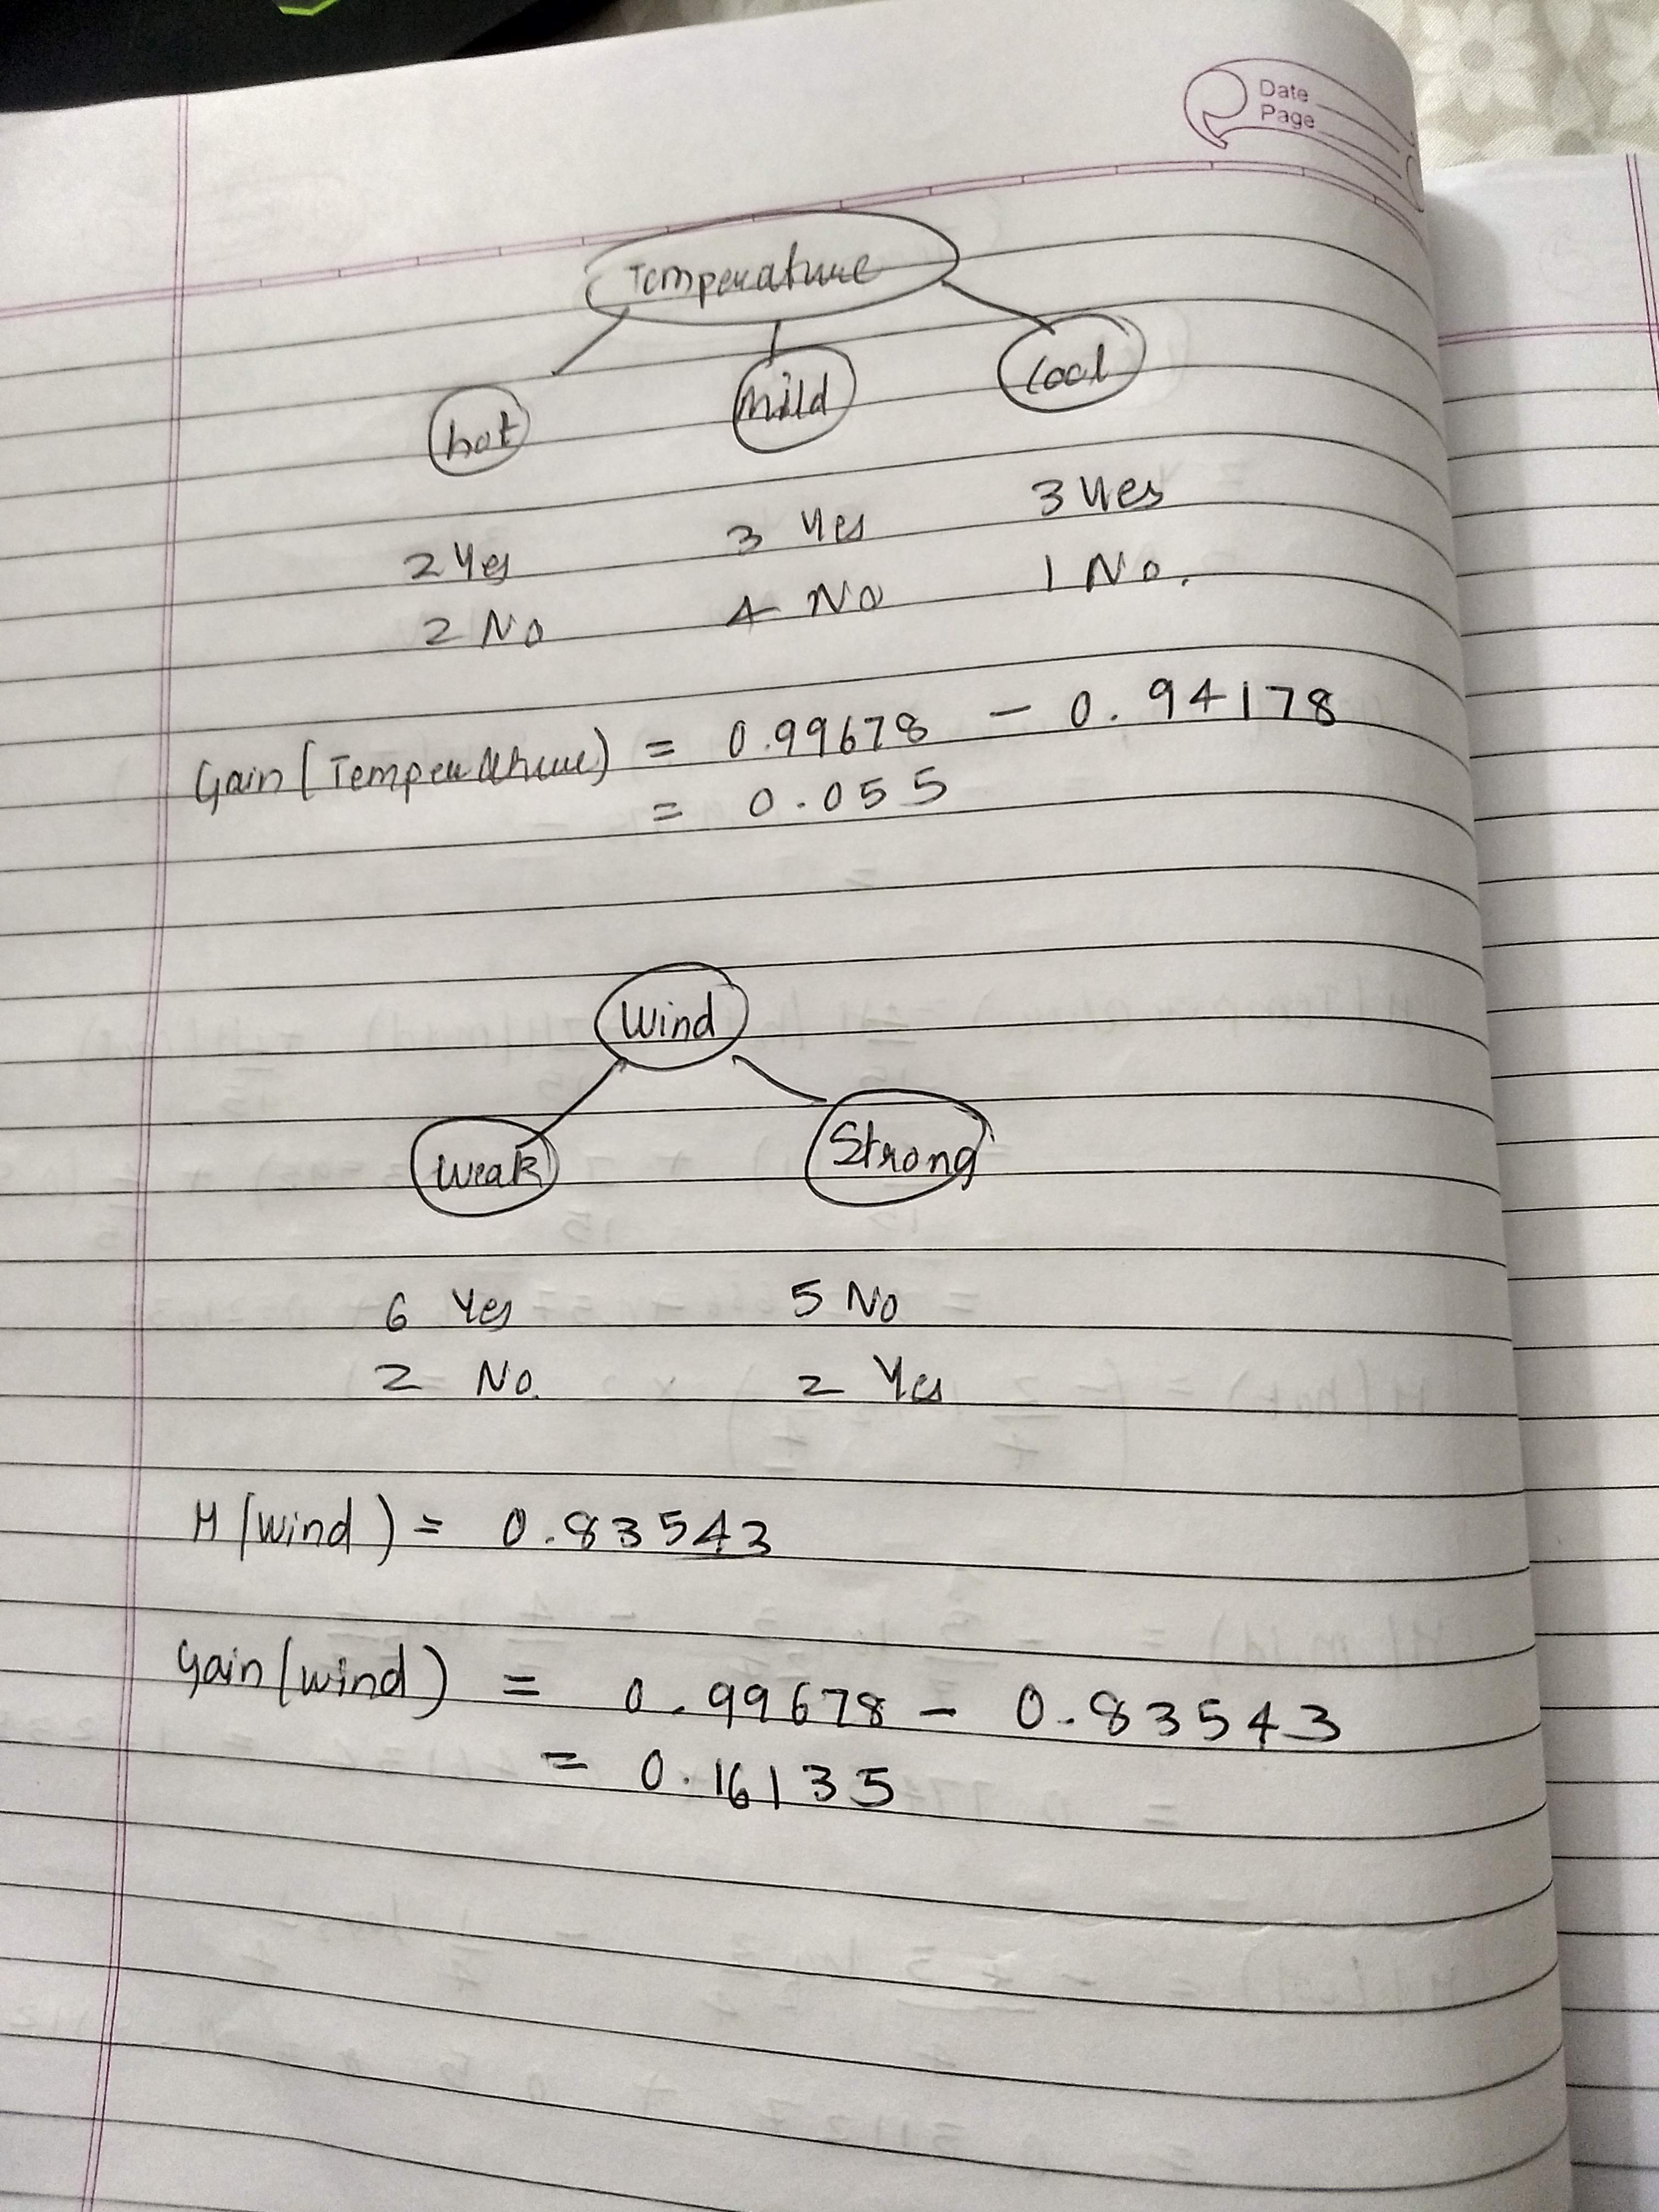 Date
Page
Temperature
hot mild cool
2 Yes 3 Yes 3 Yes
2 No 4 No 1 No.
Gain (Temperature) = 0.99678 - 0.94178
= 0.055
Wind
Weak Strong
6 Yes 5 No
2 No. 2 Yes
H (wind) = 0.83543
Gain (wind) = 0.99678 - 0.83543
= 0.16135